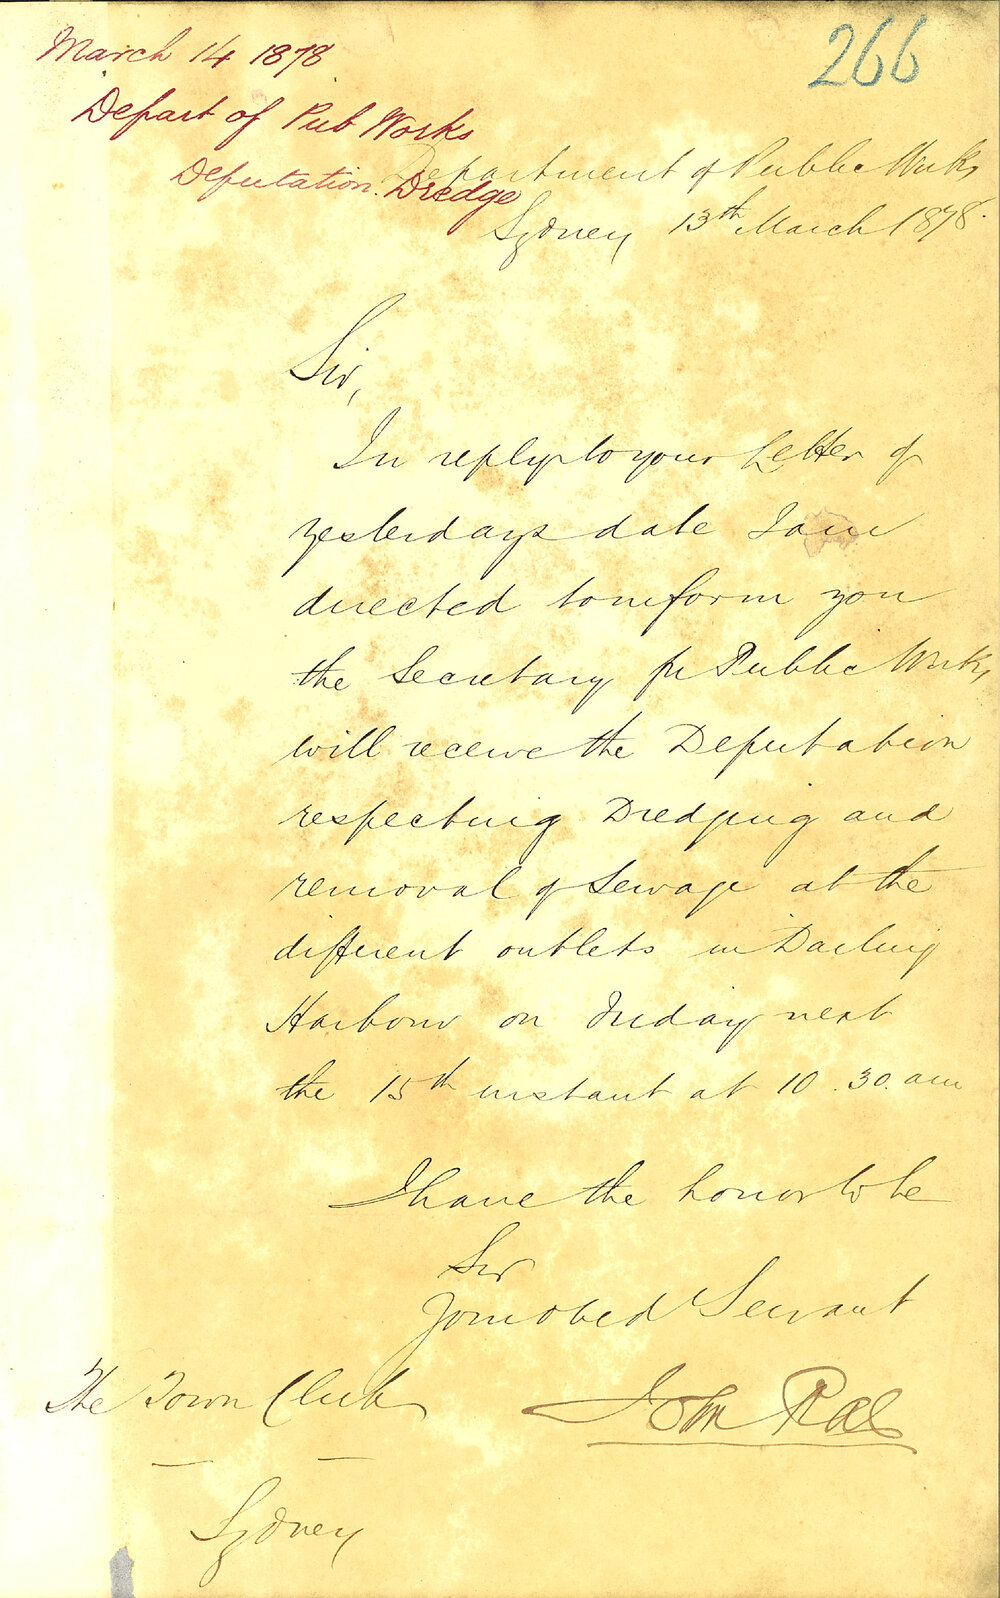 March 14 1878
266
Depart of Pub Works
Deputation. Dredge
Department of Public Works
Sydney 13th March 1878.
Sir,
In reply to your letter of
yesterdays date I am
directed to inform you
the Secretary for Public Works
will receive the Deputation
respecting Dredging and
removal of Sewage at the
different outlets in Darling
Harbour on Friday next
the 15th instant at 10.30. am
I have the honor to be
Sir
Your obed Servant
John Rae
The Town Clerk
Sydney